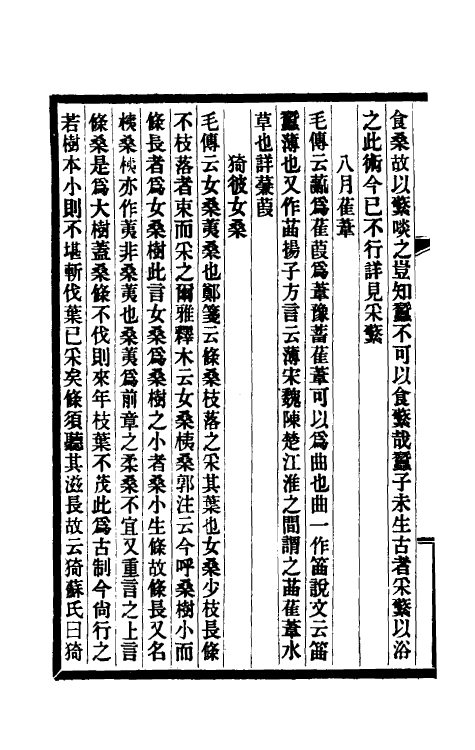 食桑故以蘩啖之豈知蠶不可以食蘩哉蠶子未生古者采蘩以浴
之此術今已不行詳見采蘩
八月萑葦
毛傳云薍爲萑葭爲葦豫蓄萑葦可以爲曲也曲一作䒼說文云䒼
蠶薄也又作苗揚子方言云薄宋魏陳楚江淮之間謂之苗萑葦水
草也詳蒹葭
猗彼女桑
毛傳云女桑荑桑也鄭箋云條桑枝落之采其葉也女桑少枝長條
不枝落者束而采之爾雅釋木云女桑桋桑郭注云今呼桑樹小而
條長者爲女桑樹此言女桑爲桑樹之小者桑小生條故條長又名
桋桑桋亦作荑非桑荑也桑荑爲前章之柔桑不宜又重言之上言
條桑是爲大樹蓋桑條不伐則來年枝葉不茂此爲古制今尙行之
若樹本小則不堪斬伐葉已采矣條須聽其滋長故云猗蘇氏曰猗